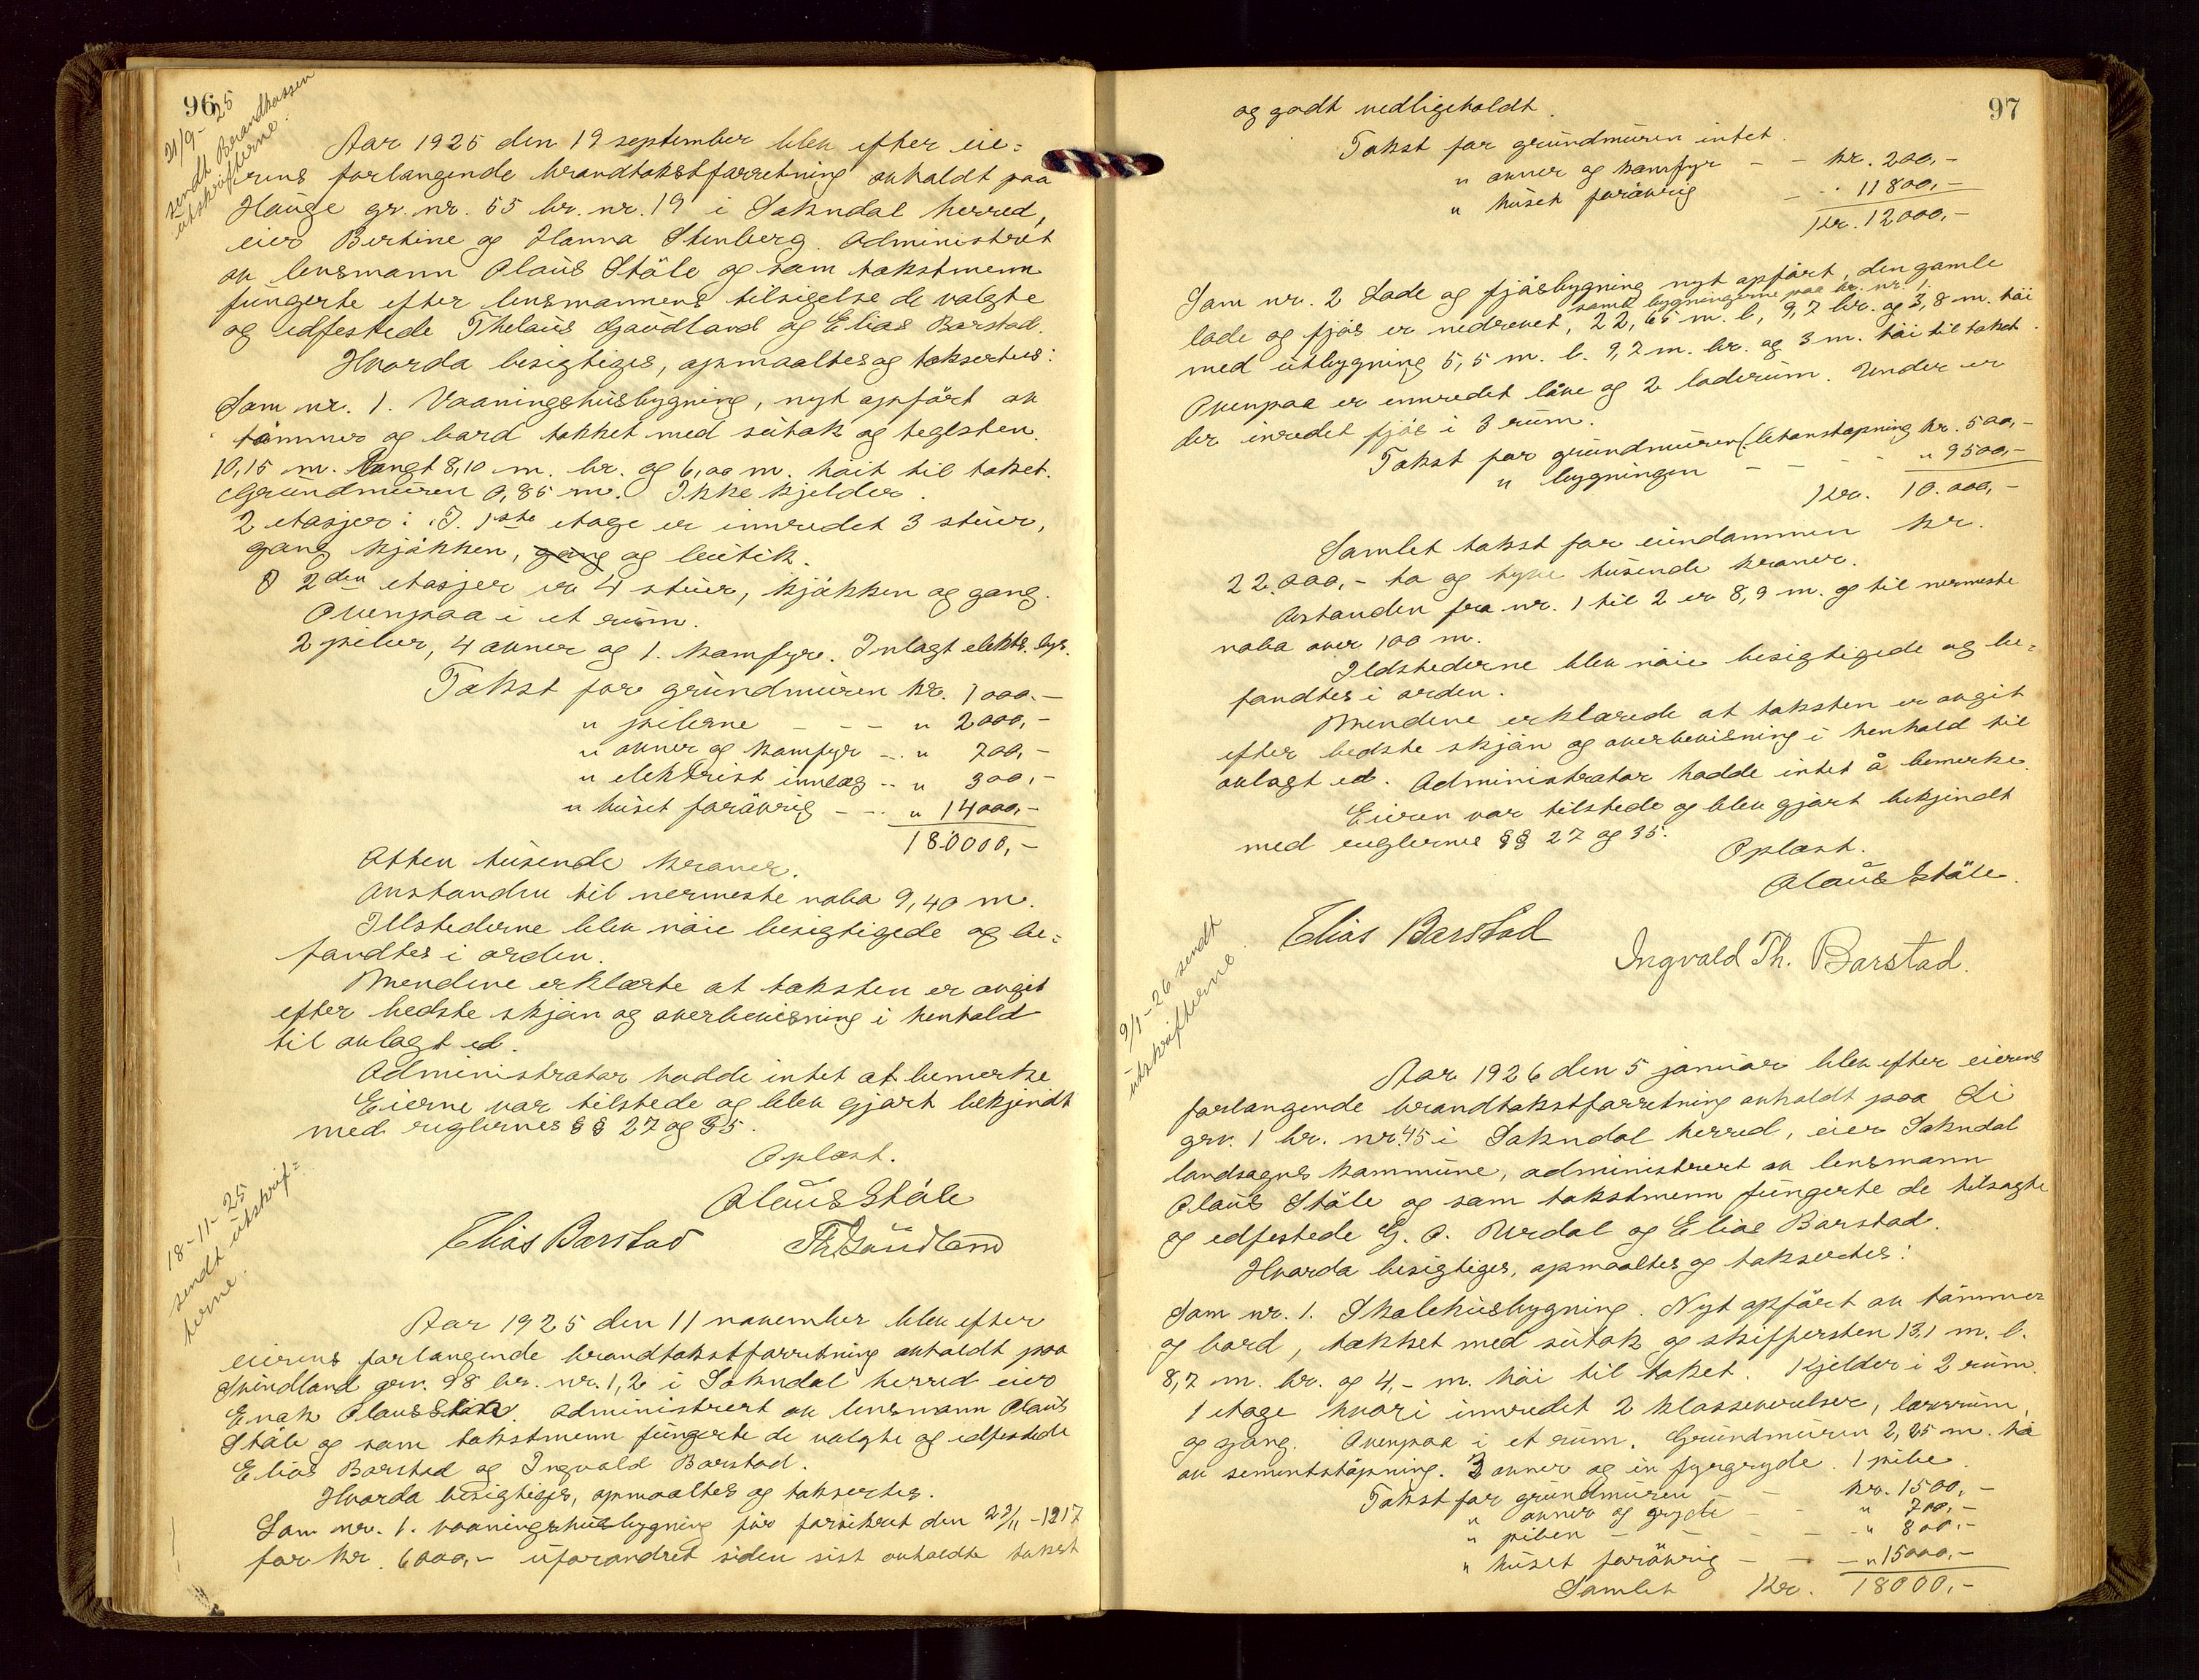 96
21/9-25
sendt Brandkassen
utskrifterne.
Aar 1925 den 19 september blev efter eie=
rens forlangende brandtakstforretning avholdt paa
Hauge gr. nr. 55 br. nr. 19 i Sokndal herred,
eier Bertine og Hanna Stenberg. Administrert
av lensmann Olaus Ståle og som takstmenn
fungerte efter lensmannens tilsigelse de valgte
og edfestede Thelaus Gaudland og Elias Barstad.
Hvorda besigtiges, opmaaltes og taksertes:
Som nr. 1. Vaaningshusbygning, nyt opfört av
tömmer og bord tækket med sutak og teglsten.
10,15 m. langt 8,10 m. br. og 6,00 m. höit til taket.
Grundmuren 0,85 m. Ikke kjelder.
2 etasjer: I 1ste etage er innredet 3 stuer,
gang kjökken, gang og butik.
I 2den etasjer er 4 stuer, kjökken og gang.
Ovenpaa i et rum.
2 piber, 4 ovner og 1. komfyr. Inlagt elektr. lys.
Takst for grundmuren kr. 1000.-
" piberne - - - " 2000,-
" ovner og komfyr - .. " 700,-
" elektrisk innlæg .. " 300,-
" huset forövrig - - .. " 14000,-
18.0000,-
Atten tusende kroner.
Avstanden til nermeste nabo 9,40 m.
Illstederne blev nöie besigtigede og be=
fandtes i orden.
Mendene erklærte at taksten er avgit
efter bedste skjön og overbevisning i henhold
til avlagt ed.
Administrator hadde intet at bemerke
Eierne var tilstede og blev gjort bekjendt
med reglernes §§ 27 og 35.
Oplæst.
Olaus Ståle
Elias Barstad Th Gaudland
18-11-25
sendt utskrif=
terne.
Aar 1925 den 11 november blev efter
eierens forlangende brandtakstforretning avholdt paa
Spindland grn. 98 br. nr. 1, 2 i Sokndal herred eier
Enok Olaus Ståle. Administrert av lensmann Olaus
Ståle og som takstmenn fungerte de valgte og edfestede
Elias Barstad og Ingvald Barstad.
Hvorda besigtiges, opmaaltes og taksertes.
Som nr. 1. vaaningshusbygning för forsikret den 23/11 - 1917
for kr. 6000,- uforandret siden sist avholdte takst
97
og godt vedligeholdt.
Takst for grundmuren intet.
" ovner og komfyr - - kr. 200,-
" huset forövrig - .. 11800,-
Kr. 12000,-
Som nr. 2 Lade og fjösbygning nyt opfört, den gamle
samt bygningerne paa br. nr. 1.
lade og fjös er nedrevet, 22,65 m. l, 9,7 br. og 3,8 m. höi
med utbygning 5,5 m. l. 9,7 m. br. og 3 m. höi til taket.
Ovenpaa er innredet låve og 2 laderum. Under er
der inredet fjös i 3 rum.
Takst for grundmuren (betonstöpning kr. 500,-
" bygningen - - - - " 9500,-
Kr. 10.000,-
Samlet takst for eiendommen kr.
22.000,- to og tyve tusende kroner.
Avstanden fra nr. 1 til 2 er 8,9 m. og til nermeste
nabo over 100 m.
Ildstederne blev nöie besigtigede og be=
fandtes i orden.
Mendene erklærede at taksten er avgit
efter bedste skjön og overbevisning i henhold til
avlagt ed. Administrator hadde intet å bemerke.
Eieren var tilstede og blev gjort bekjendt
med reglernes §§ 27 og 35.
Oplæst.
Olaus Ståle.
Elias Barstad
Ingvald Th. Barstad.
9/1-26 sendt
utskrifterne.
Aar 1926 den 5 januar blev efter eierens
forlangende brandtakstforretning avholdt paa Li
grn. 1 br. nr. 45 i Sokndal herred, eier Sokndal
landsogns kommune, administrert av lensmann
Olaus Ståle og som takstmenn fungerte de tilsagte
og edfestede G. O. Urdal og Elias Barstad.
Hvorda besigtiges, opmaaltes og taksertes:
Som nr. 1. Skolehusbygning. Nyt opfört av tömmer
og bord, tækket med sutak og skiffersten 13,1 m. l.
8,7 m. br. og 4,- m. höi til taket. Kjelder i 2 rum.
1 etage hvori innredet 2 klasseværelser, lærerum,
og gang. Ovenpaa i et rum. Grundmuren 2,25 m. hö
av sementstöpning. 3 ovner og en fyrgryde. 1 pibe.
Takst for grundmuren - kr. 1500,-
" ovner og gryde - - " 700,-
" piben - - - - - " 800.-
" huset forövrig - - - " 15000,-
Samlet Kr. 18000,-